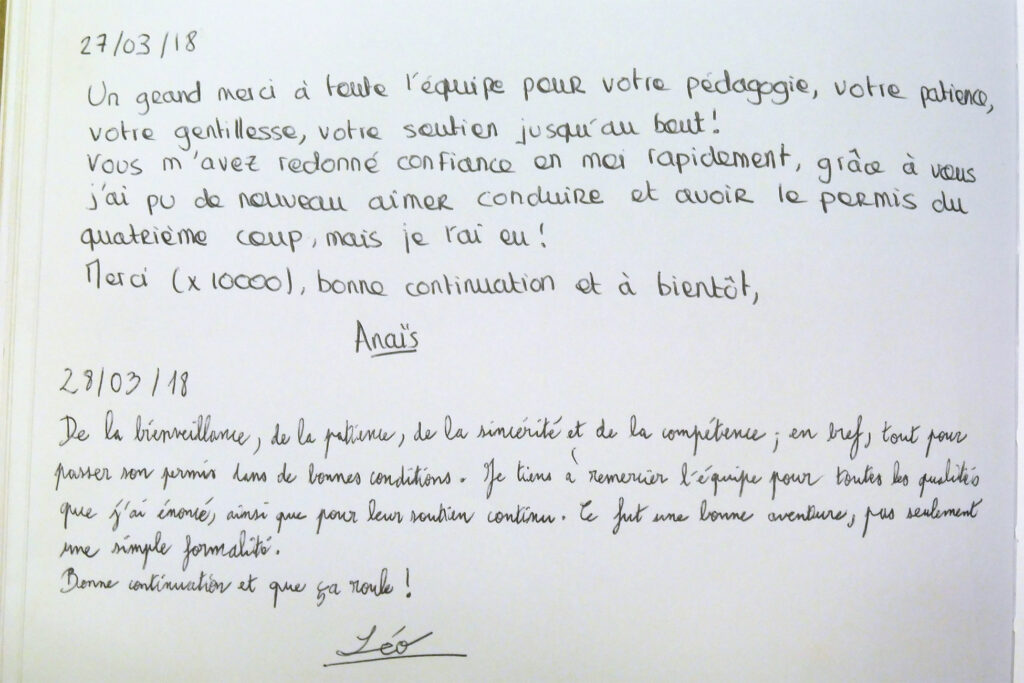 27/03/18
Un grand merci à toute l'équipe pour votre pédagogie, votre patience,
votre gentillesse, votre soutien jusqu'au bout!
Vous m'avez redonné confiance en moi rapidement, grâce à vous
j'ai pu de nouveau aimer conduire et avoir le permis du
quatrième coup, mais je l'ai eu!
Merci (x 10000), bonne continuation et à bientôt,
Anaïs
28/03/18
De la bienveillance, de la patience, de la sincérité et de la compétence ; en bref, tout pour
passer son permis dans de bonnes conditions. Je tiens à remercier l'équipe pour toutes les qualités
que j'ai énoncé, ainsi que pour leur soutien continu. Ce fut une bonne aventure, pas seulement
une simple formalité.
Bonne continuation et que ça roule !
Léo